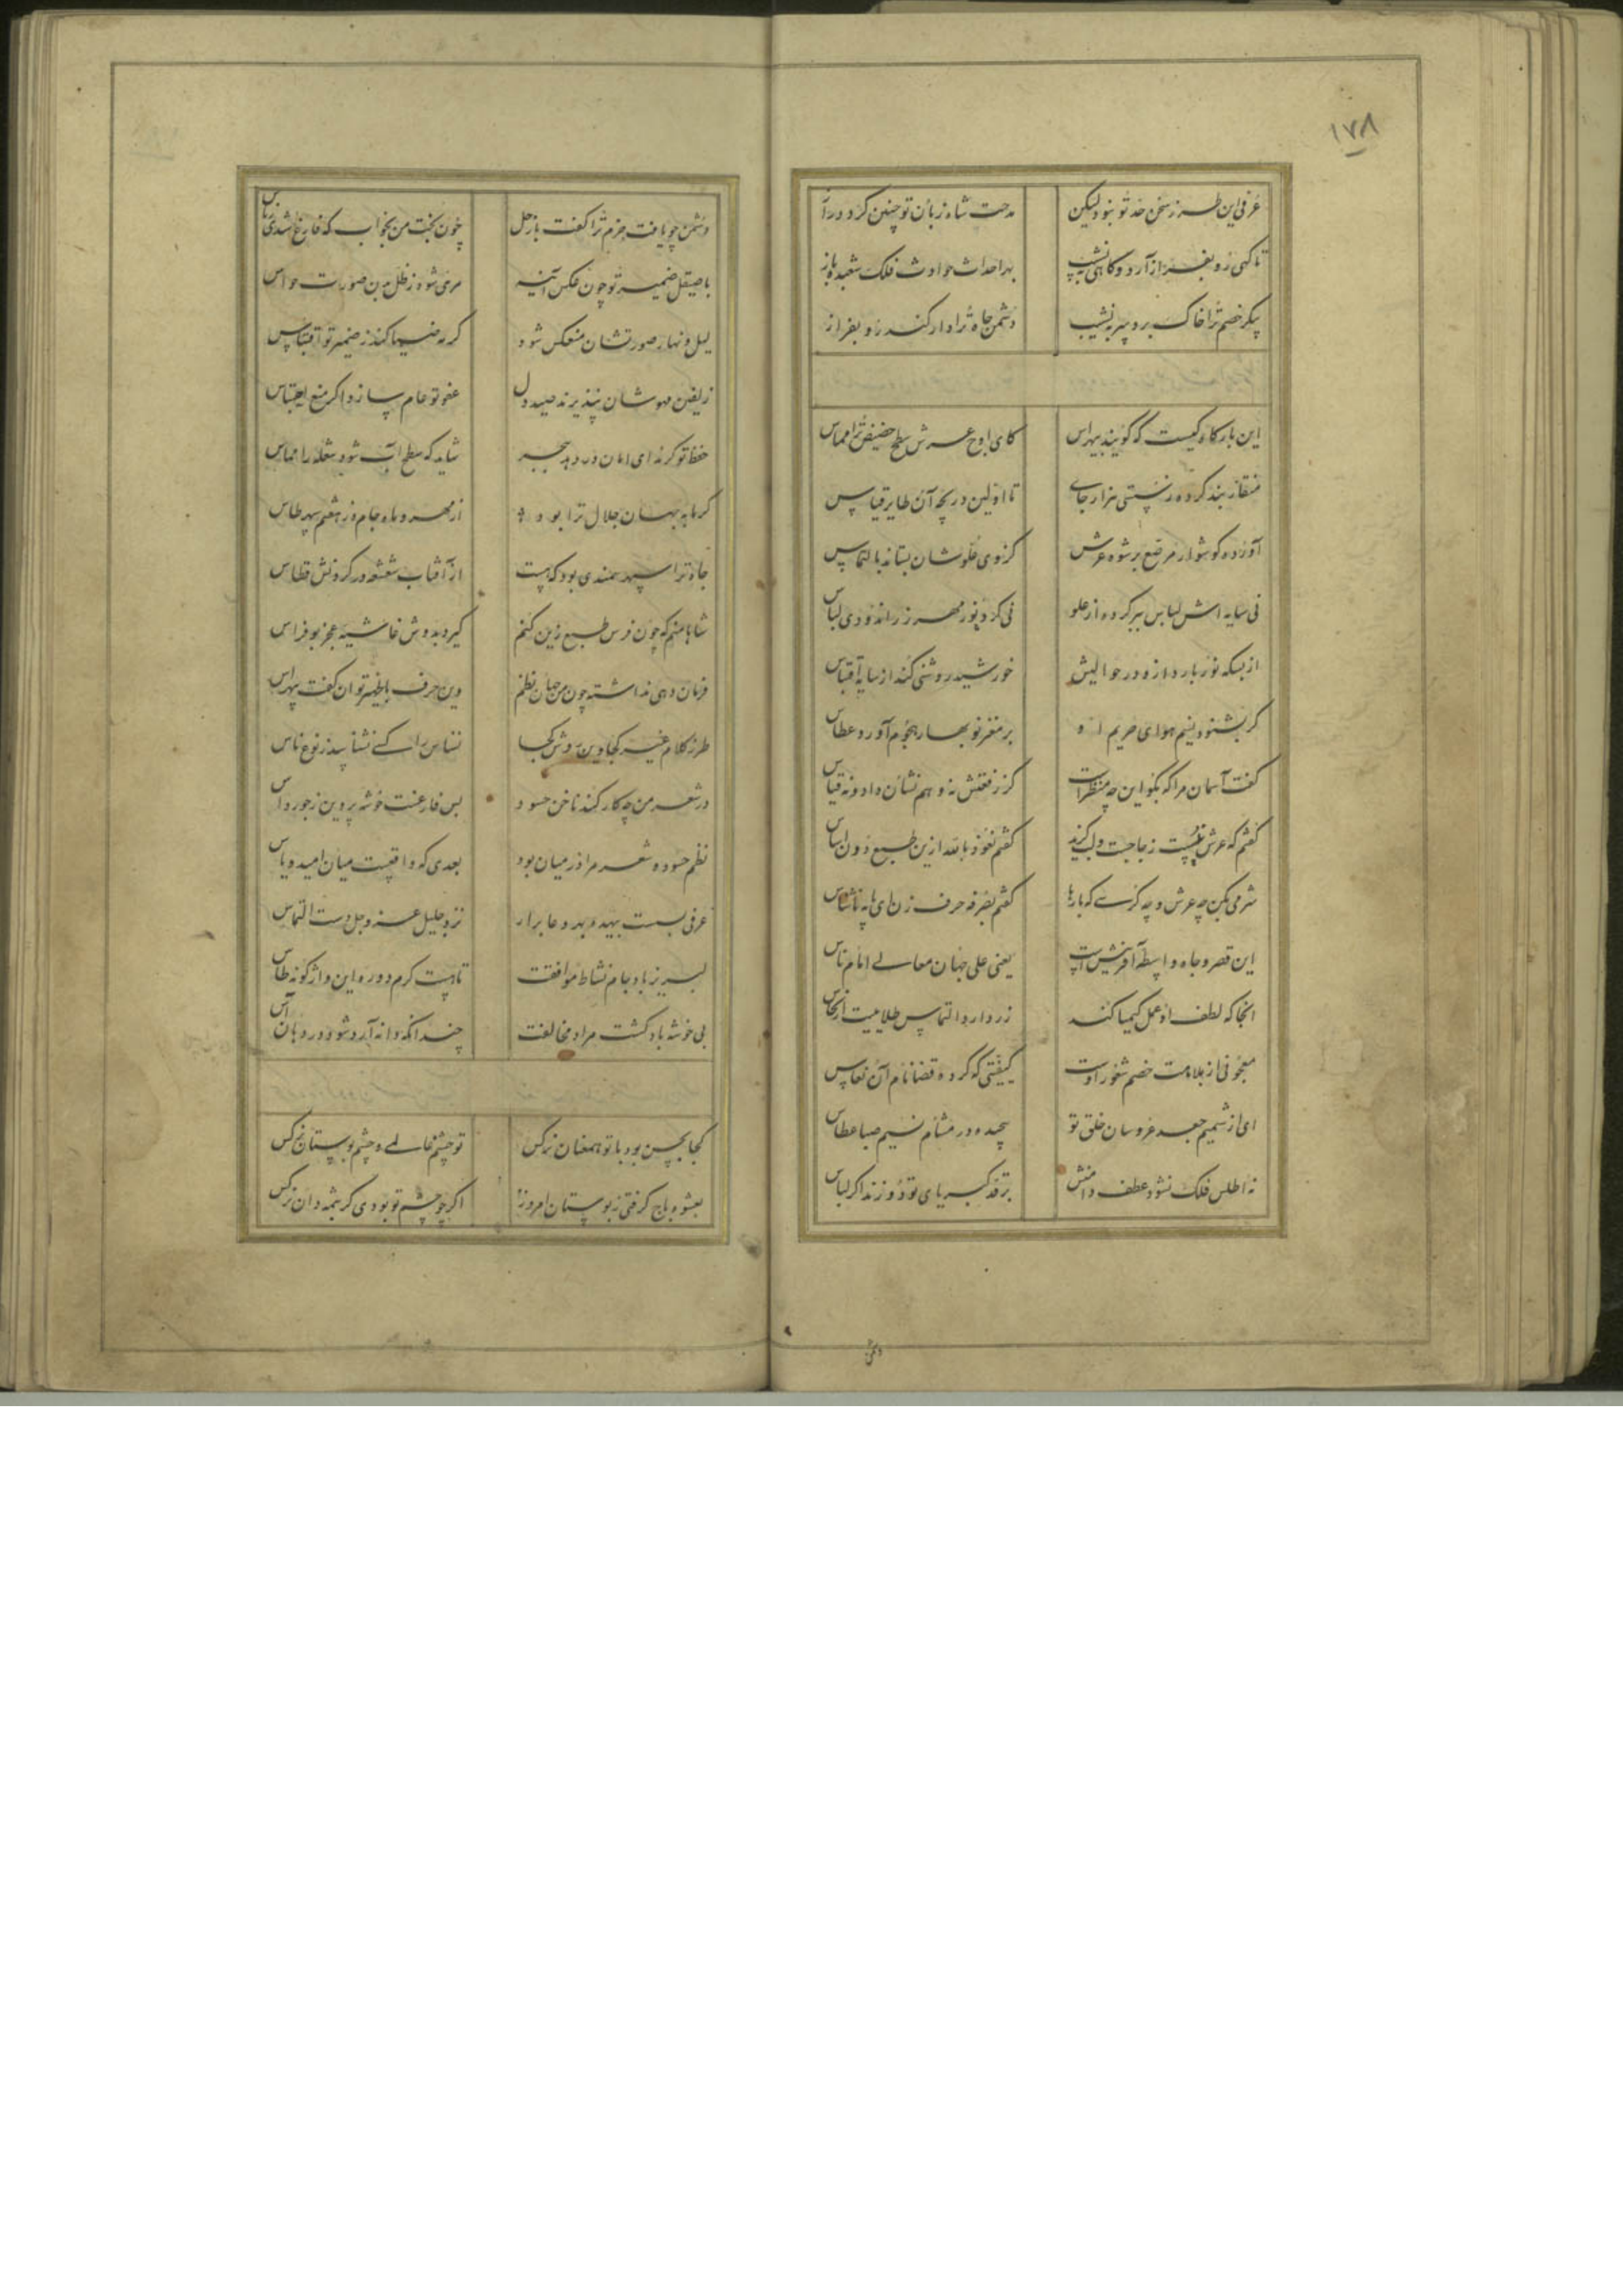 ۱۷۸
عرفی این طرز سخن حد تو نبود لیکن مدحت شاه زبان تو چنین کرد دراز
تا گهی رو بفراز آرد و گاهی بنشیب بهر احداث حوادث فلک شعبده باز
پیکر خصم ترا خاک برد سر بنشیب دشمن جاه ترا دار کند رو بفراز
این بارگاه کیست که گویند بی هراس کای اوج عرش سطح حضیض ترا مماس
منقار بند کرده ز سستی هزار جای تا اولین دریچه آن طایر قیاس
آورده گوشوار مرصع برشوه عرش کز وی علو شان بستاند بالتماس
نی سایه اش لباس ببر کرده از علو نی کرد نور مهر زراندود دی لباس
از بسکه نور بارد از و در حوالیش خورشید روشنی کند از سایه اقتباس
گر بشنود نسیم هوای حریم او بر مغز نوبهار هجوم آورد عطاس
گفت آسمان مرا که بگو این چه منظر است کز رفعتش نه وهم نشان داد و نه قیاس
گفتم که عرش نیست ز جاجت ولب گزید گفتم نعوذ بالله ازین طبع دون اساس
شرمی بکن چه عرش و چه کرسی که بارها گفتم بصرفه حرف زن ای پایه ناشناس
این قصر و جاه واسطه آفرینش است یعنی علی جهان معالی امام ناس
انجا که لطف او عمل کیمیا کند زر دارد التماس طلاییت از نحاس
معجونی از بلامت خصم شعور اوست کیفیتی که کرده قضا نام آن نعاس
ای از شمیم جعد عروسان خلق تو پیچیده در مشام نسیم صبا عطاس
نه اطلس فلک نشود عطف دامنش بر قد کبریای تو دوزند اگر لباس
دشمن
دشمن چو یافت حزم ترا گفت با زحل چون بخت من بخواب که فارغ شدی ز پاس
با صیقل ضمیر تو چون عکس آینه مرئی شود ز ظل بدن صورت حواس
لیل و نهار صورتشان منعکس شود گر مه ضیا کند ز ضمیر تو اقتباس
زلفین مهوشان نپذیرند صید دل عفو تو عام سازد اگر منع احتباس
حفظ تو گر ندای امان در دهد بجبر شاید که سطح آب شود شعله را مماس
گر مایه جهان جلال ترا بود از مهر و ماه جام و ز هفتم سپهر طاس
جاه ترا سپهر سمندی بود که هست از آفتاب شعشعه در گردنش قطاس
شاها منم که چون فرس طبع زین کنم گیرد بدوش غاشیه عجز بوفراس
فرمان دهی نداشته چون من جهان نظم وین حرف با ظهیر توان گفت بی هراس
طرز کلام غیر کجا وین روش کجا نسناس را کسی نشناسد ز نوع ناس
در شعر من چکار کند ناخن حسود بس فارغست خوشه پروین ز جور داس
نظم حسود و شعر مرا در میان بود بعدی که واقعیست میان امید و یاس
عرفی بست بیهده بهر دعا برار نزد جلیل عز و جل دست التماس
لبریز باد جام نشاط موافقت تا هست کرم دوره این واژگونه طاس
بی خوشه باد کشت مراد مخالفت چندانکه دانه آرد شود در دهان آس
کجا بحسن بود با تو همعنان نرگس تو چشم عالمی و چشم بوستان نرگس
بعشوه باج گرفتی ز بوستان امروز اگر چو چشم تو بودی کرشمه دان نرگس